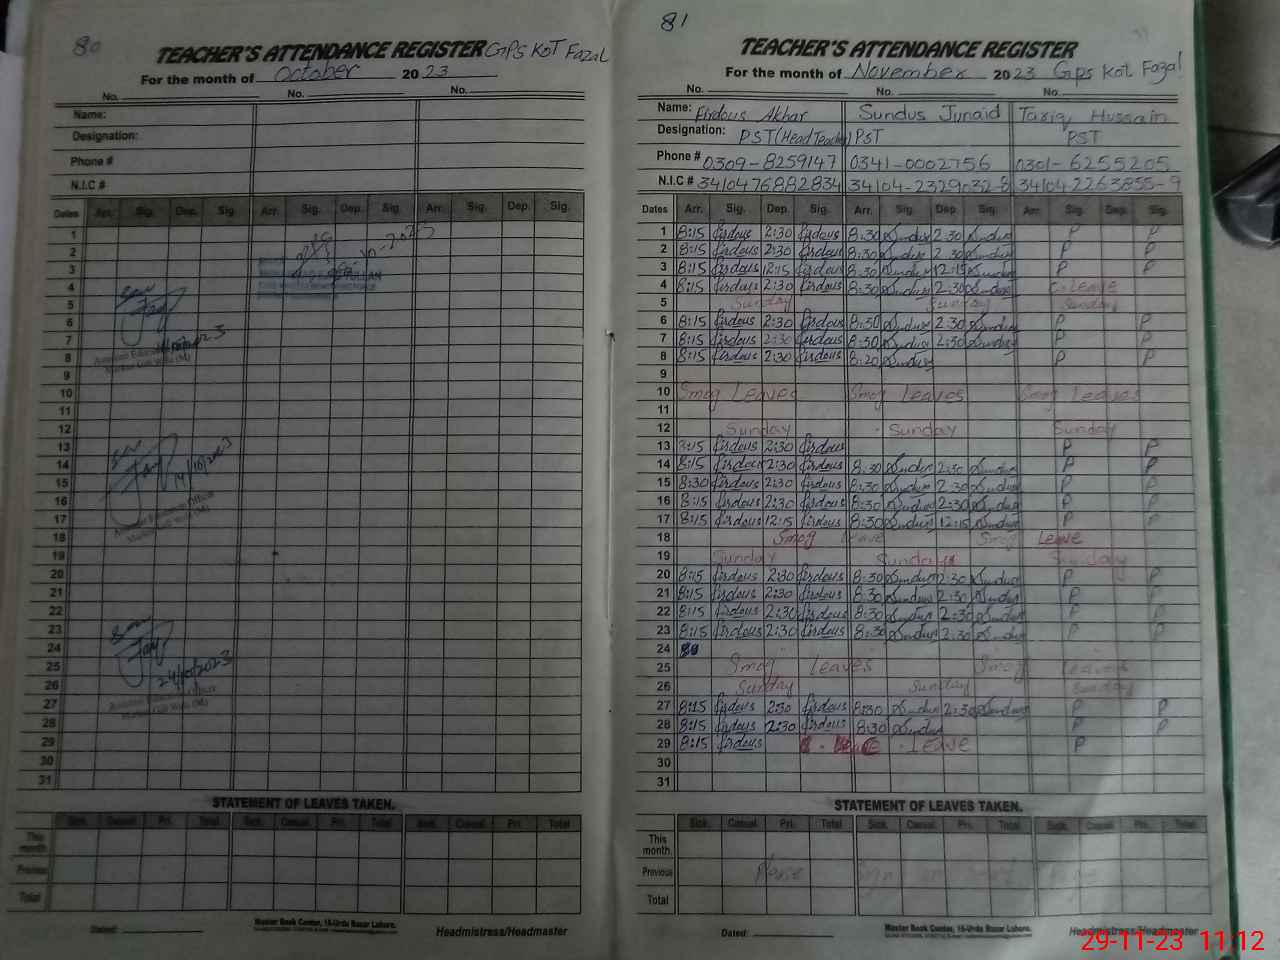 80
TEACHER'S ATTENDANCE REGISTER GPS KOT Fazal
For the month of October 2023
No. No. No.
Name:
Designation:
Phone #
N.I.C #
Dates Arr. Sig. Dep. Sig. Arr. Sig. Dep. Sig. Arr. Sig. Dep. Sig.
1
2
3
4
5
6
7
8
9
10
11
12
13
14
15
16
17
18
19
20
21
22
23
24
25
26
27
28
29
30
31
14/10/2023
24/10/2023
STATEMENT OF LEAVES TAKEN.
Sick. Casual. Pri. Total Sick. Casual. Pri. Total Sick. Casual. Pri. Total
This month.
Previous
Total
Dated:
Master Book Center, 15-Urdu Bazar Lahore.
Headmistress/Headmaster
81
TEACHER'S ATTENDANCE REGISTER
For the month of November 2023 Gps Kot Fazal
No. No. No.
Name: Firdous Akhar Sundus Junaid Tariq Hussain
Designation: PST (Head Teacher) PST PST
Phone # 0309-8259147 0341-0002756 0301-6255205
N.I.C # 3410476882834 34104-2329032-8 34104 2263855-9
Dates Arr. Sig. Dep. Sig. Arr. Sig. Dep. Sig. Arr. Sig. Dep. Sig.
1 8:15 firdous 2:30 firdous 8:30 Sundus 2:30 Sundus P P
2 8:15 firdous 2:30 firdous 8:30 Sundus 2:30 Sundus P P
3 8:15 firdous 12:15 firdous 8:30 Sundus 12:15 Sundus P P
4 8:15 firdous 2:30 firdous 8:30 Sundus 2:30 Sundus C-Leave
5 Sunday Sunday Sunday
6 8:15 firdous 2:30 firdous 8:30 Sundus 2:30 Sundus P P
7 8:15 firdous 2:30 firdous 8:30 Sundus 2:30 Sundus P P
8 8:15 firdous 2:30 firdous 8:20 Sundus P P
9
10 Smog Leaves Smog Leaves Smog Leaves
11
12 Sunday Sunday Sunday
13 8:15 firdous 2:30 firdous P P
14 8:15 firdous 2:30 firdous 8:30 Sundus 2:30 Sundus P P
15 8:30 firdous 2:30 firdous 8:30 Sundus 2:30 Sundus P P
16 8:15 firdous 2:30 firdous 8:30 Sundus 2:30 Sundus P P
17 8:15 firdous 12:15 firdous 8:30 Sundus 12:15 Sundus P P
18 Smog Leave Smog Leave
19 Sunday Sunday Sunday
20 8:15 firdous 2:30 firdous 8:30 Sundus 2:30 Sundus P P
21 8:15 firdous 2:30 firdous 8:30 Sundus 2:30 Sundus P P
22 8:15 firdous 2:30 firdous 8:30 Sundus 2:30 Sundus P P
23 8:15 firdous 2:30 firdous 8:30 Sundus 2:30 Sundus P P
24
25 Smog leaves Smog leaves
26 Sunday Sunday Sunday
27 8:15 firdous 2:30 firdous 8:30 Sundus 2:30 Sundus P P
28 8:15 firdous 2:30 firdous 8:30 Sundus P P
29 8:15 firdous Leave P
30
31
STATEMENT OF LEAVES TAKEN.
Sick. Casual. Pri. Total Sick. Casual. Pri. Total Sick. Casual. Pri. Total
This month.
Previous
Total
Dated:
Master Book Center, 15-Urdu Bazar Lahore.
Headmistress/Headmaster
29-11-23 11:12